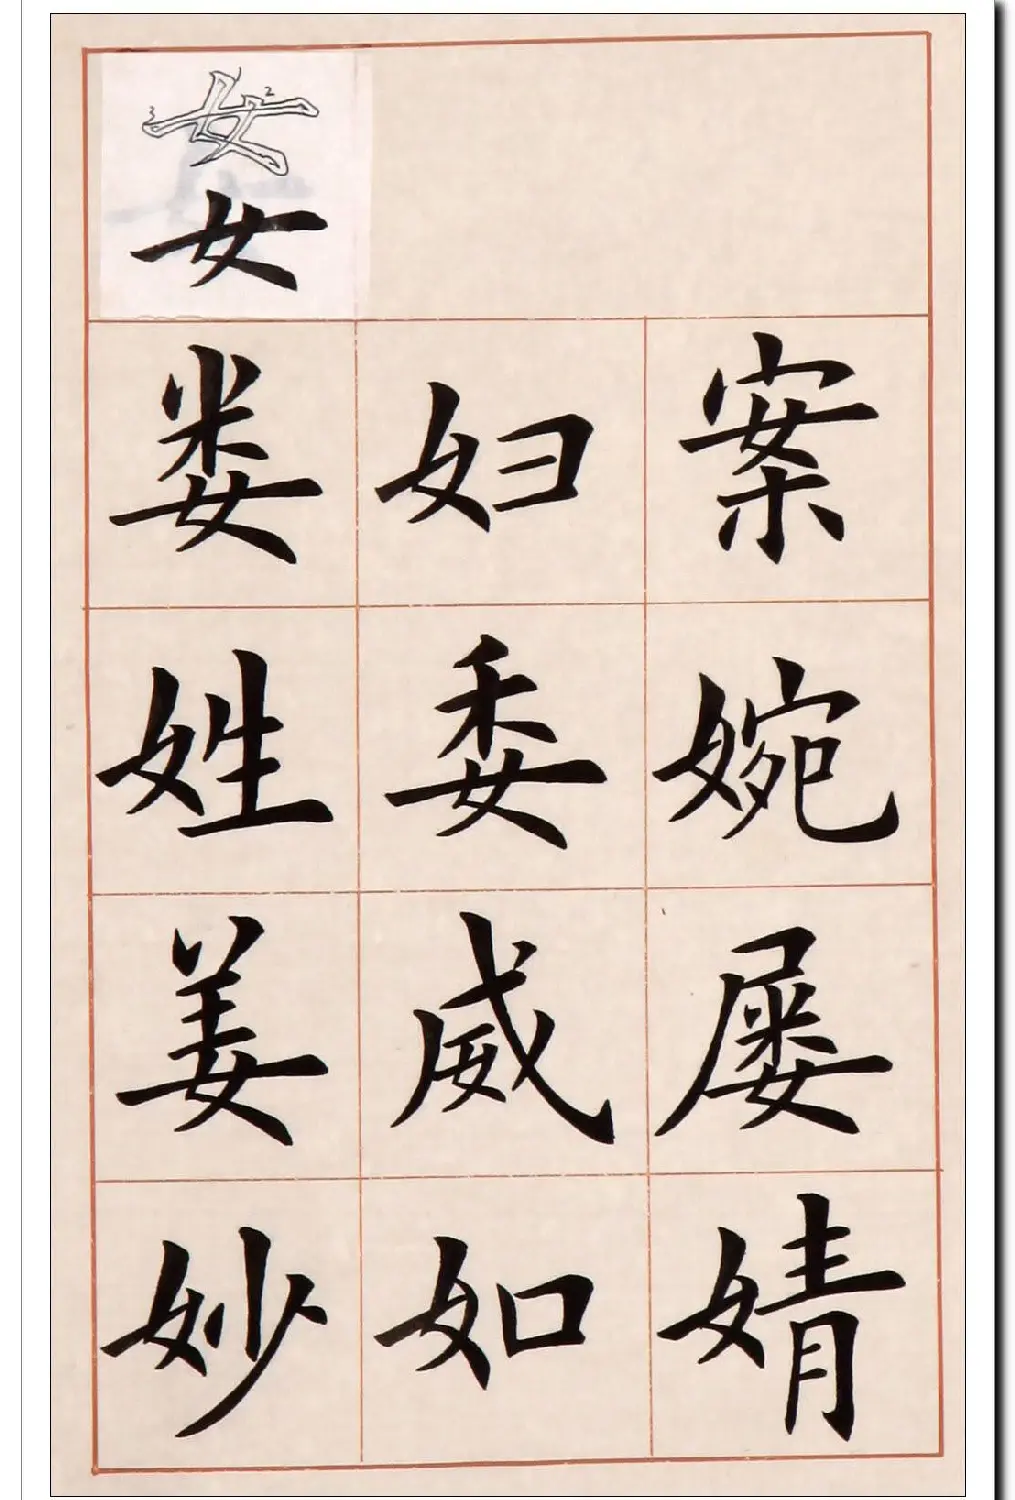 女
女
娄 妇 案
姓 委 婉
姜 威 屡
妙 如 婧